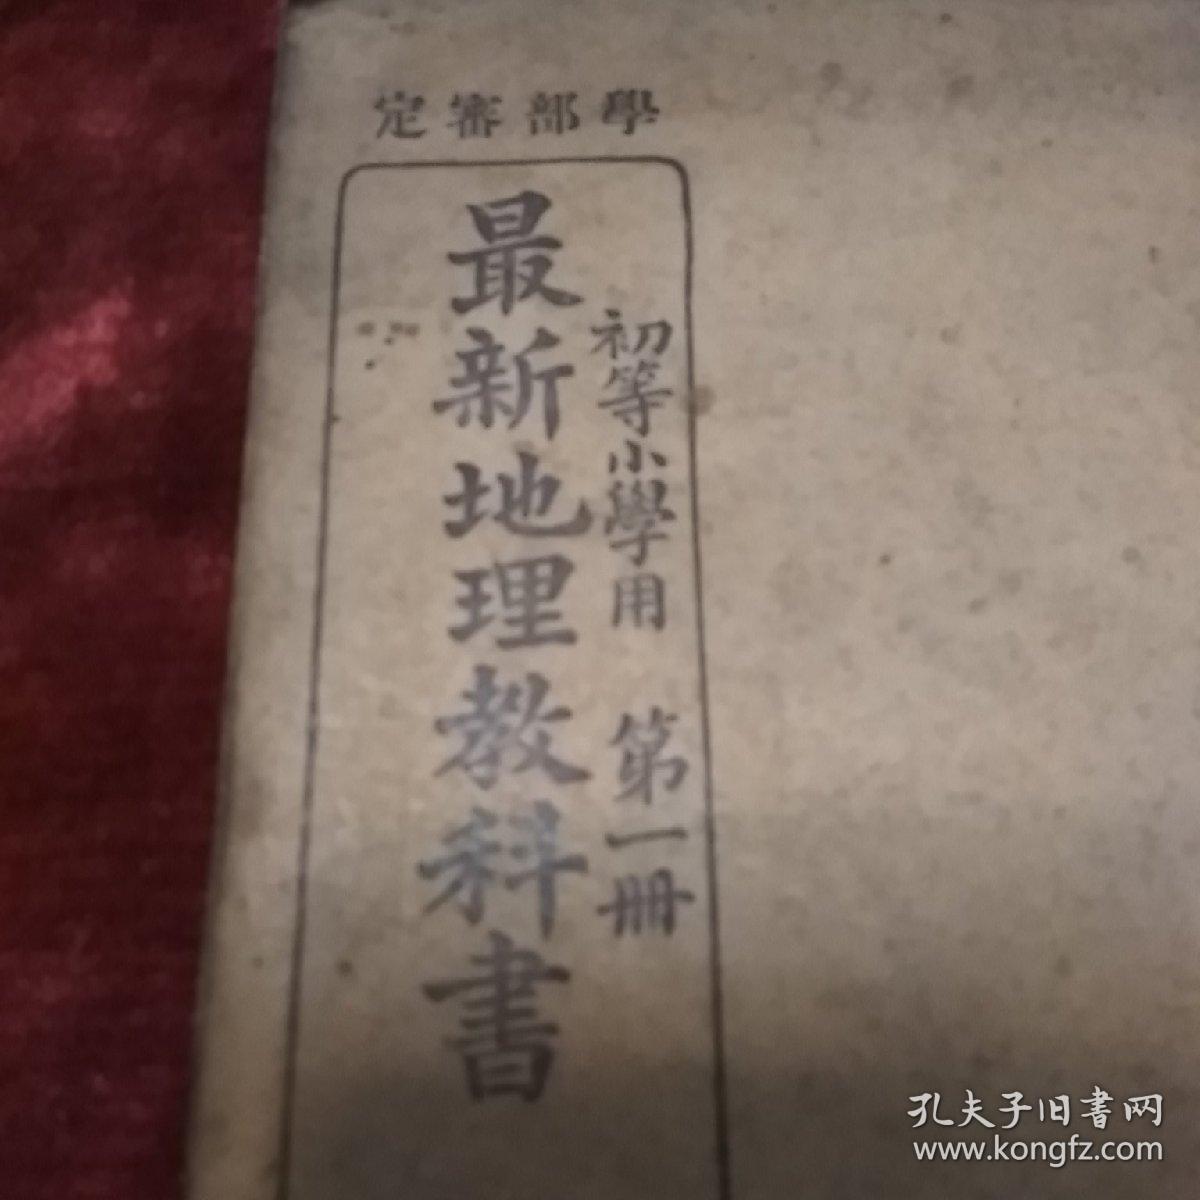 學部審定
初等小學用 第一冊
最新地理教科書
孔夫子旧书网
www.kongfz.com